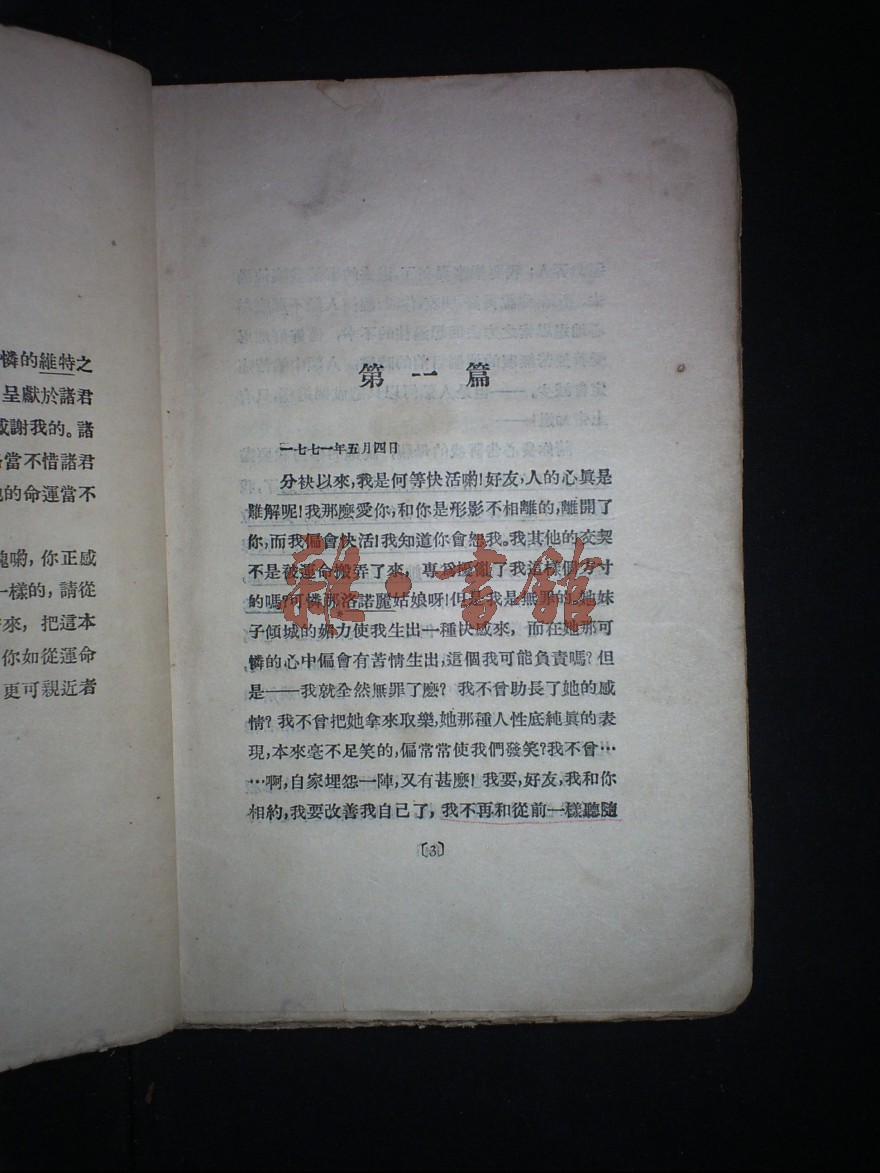 憐的維特之
呈獻於諸君
感謝我的。諸
當不惜諸君
的命運當不
喲，你正感
一樣的，請從
來，把這本
你如從運命
更可親近者
第一篇
一七七一年五月四日
分袂以來，我是何等快活喲！好友，人的心眞是
難解呢！我那麽愛你，和你是形影不相離的，離開了
你，而我偏會快活！我知道你會恕我。我其他的交契
不是被運命搬弄了來，專爲擾亂了我這樣個方寸
的嗎？可憐那洛諾麗姑娘呀！但是我是無罪的。她妹
子傾城的媚力使我生出一種快感來，而在她那可
憐的心中偏會有苦情生出，這個我可能負責嗎？但
是——我就全然無罪了麽？我不曾助長了她的感
情？我不曾把她拿來取樂，她那種人性底純眞的表
現，本來毫不足笑的，偏常常使我們發笑？我不曾…
…啊，自家埋怨一陣，又有甚麽！我要，好友，我和你
相約，我要改善我自己了，我不再和從前一樣聽隨
〔3〕
雜·書館